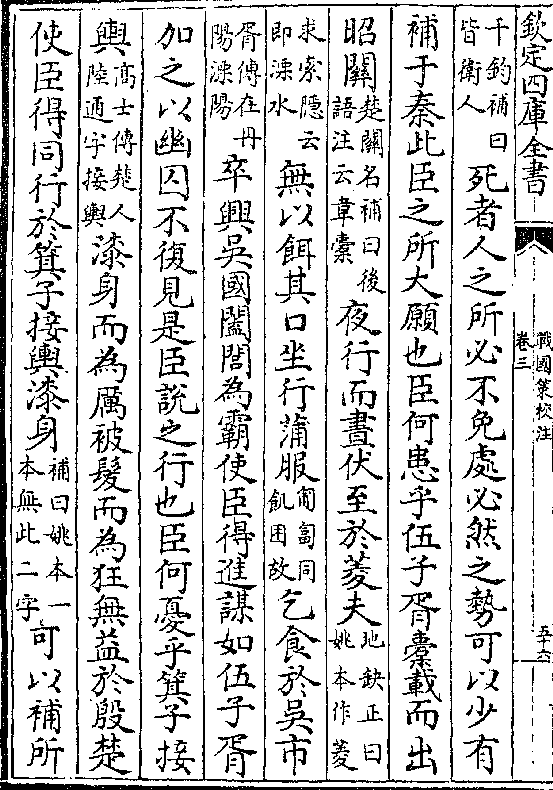 欽定四庫全書
戰國策校注
卷三
五十六
千鈞補曰皆衛人死者人之所必不免處必然之勢可以少有
補于秦此臣之所大願也臣何患乎伍子胥橐載而出
昭關楚關名補曰後語注云韋橐夜行而晝伏至於菱夫地缺正曰姚本作菱
求索隱云即溧水無以餌其口坐行蒲服匍匐同飢困故乞食於吳市
胥傳在丹陽溧陽卒興吳國闔閭為霸使臣得進謀如伍子胥
加之以幽囚不復見是臣說之行也臣何憂乎箕子接
輿髙士傳楚人陸通字接輿漆身而為厲被髮而為狂無益於殷楚
使臣得同行於箕子接輿漆身補曰姚本一本無此二字可以補所